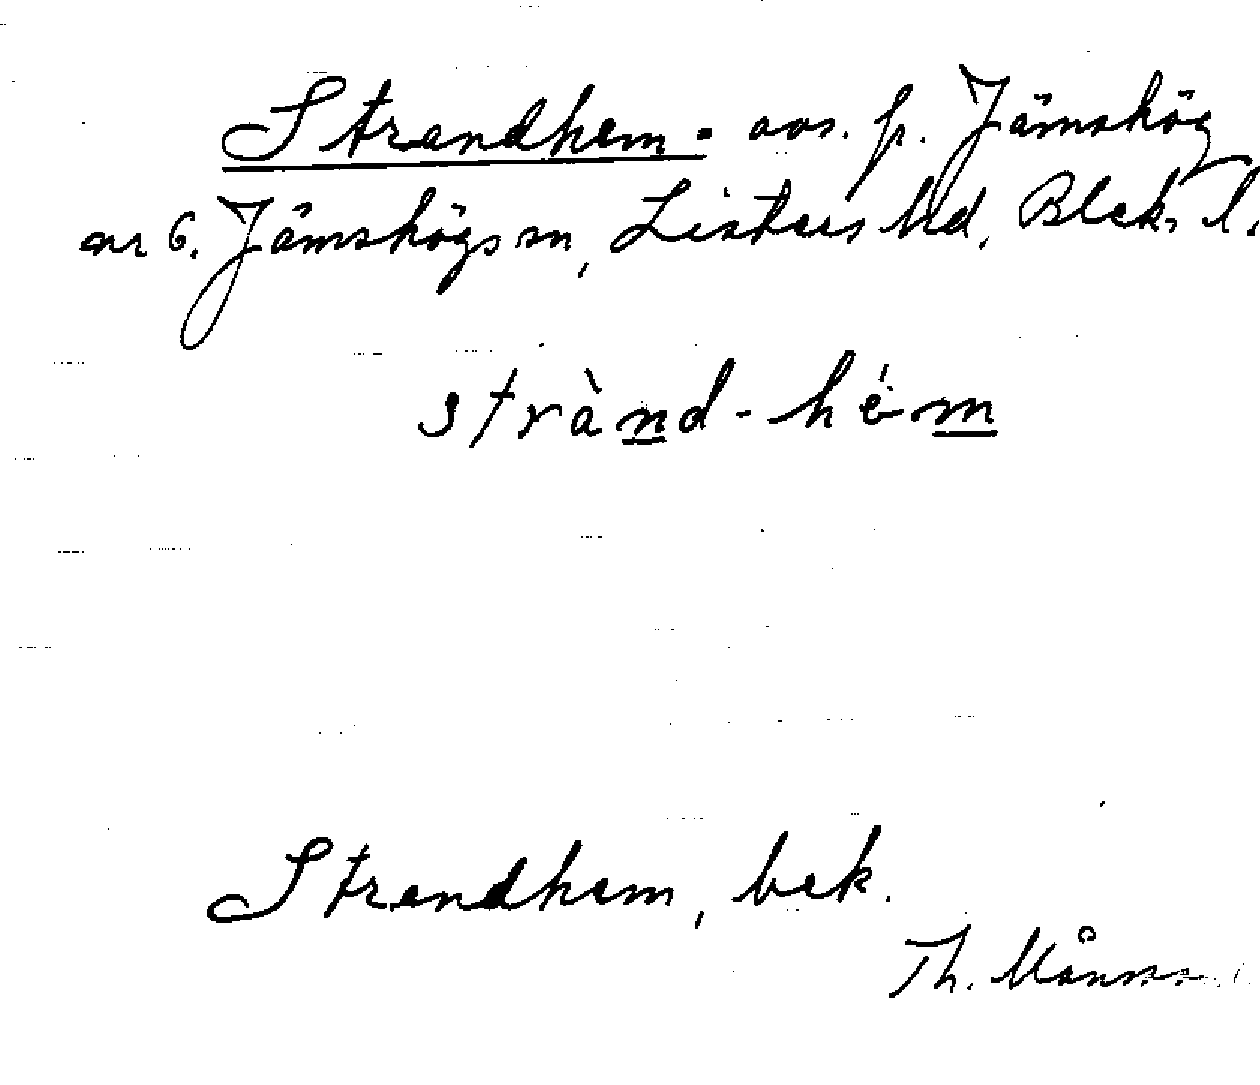 Strandhem. avs. fr. Jämshög
nr 6. Jämshögs sn, Listers hd, Blek. l.
strànd-hém
Strandhem, bek.
Th. Månsson